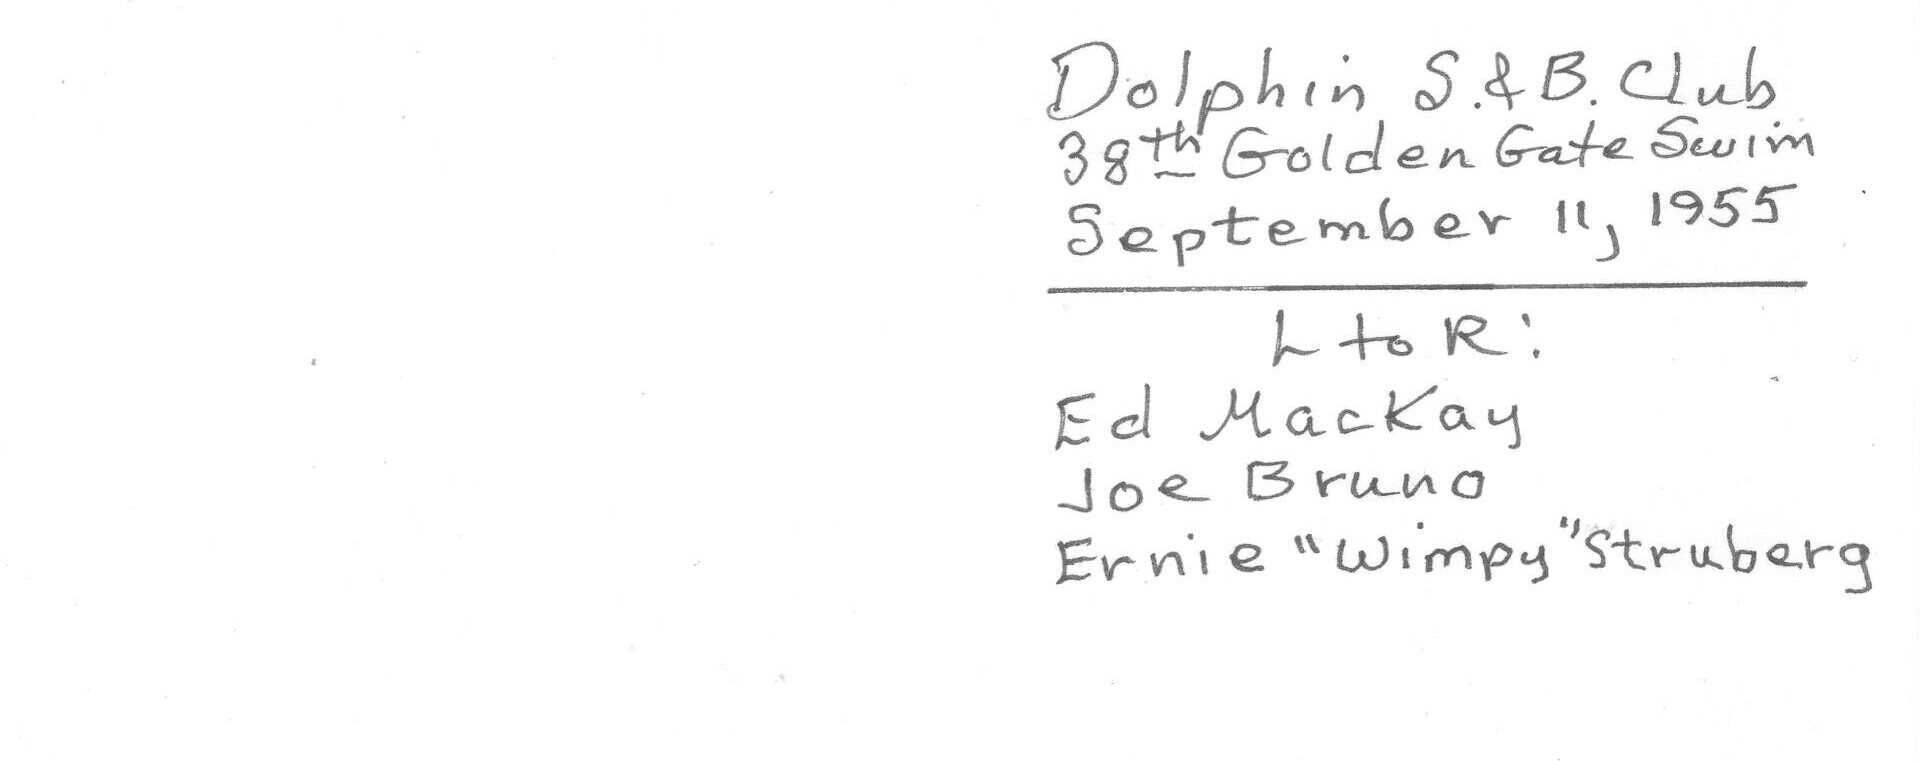 Dolphin S. & B. Club
38th Golden Gate Swim
September 11, 1955
L to R:
Ed MacKay
Joe Bruno
Ernie "Wimpy" Struberg